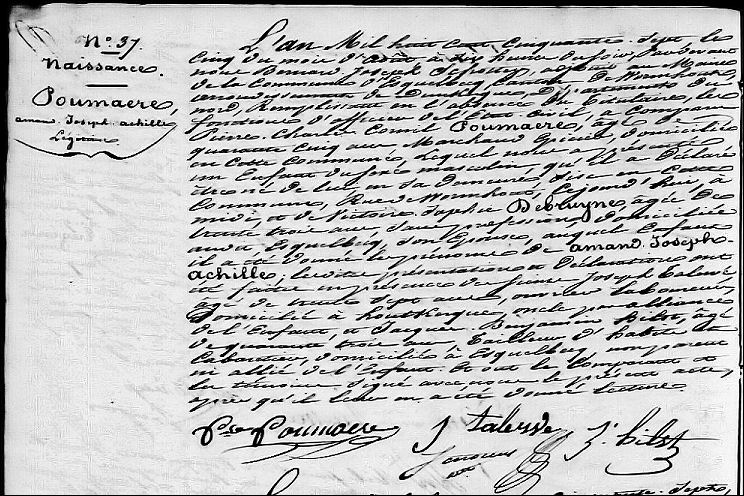 N.° 37.
Naissance.
Poumaere,
amand Joseph achille
Légitime
L'an Mil huit Cent Cinquante Sept, le
cinq du mois d'août à six heures du soir, Pardevant
nous Bernard Joseph adjoint au Maire
de la Commune d'Esquelbecq, Canton De Wormhout,
arrondissement de Dunkerque, Département du
nord, Remplissant en l'absence du titulaire, les
fonctions d'officier de l'Etat Civil, a Comparu
Pierre Charles Cornil Poumaere, âgé de
quarante Cinq ans, Marchand Epicier, domicilié
en Cette Commune, lequel nous a présenté
un Enfant du sexe masculin qu'il a Déclaré
être né de lui en sa Demeure, sise en Cette
Commune, Rue de Wormhout, Cejourd'hui, à
midi, et de Victoire Sophie Debruyne, âgée De
trente trois ans, sans profession, domiciliée
audit Esquelbecq, son Epouse, auquel Enfant
il a été donné les prénoms De amand Joseph
achille; lesdites présentation et Déclaration ont
été faites en présence de Joseph
âgé de trente Sept ans, ouvrier laboureur,
Domicilié à houtkerque, oncle par alliance
de l'Enfant, et Jacques Benjamin Bilst, âgé
de quarante trois ans Tailleur D'habits et
Cabaretier, domicilié à Esquelbecq, non parent
ni allié de l'Enfant. Et ont le Comparant et
les témoins signé avec nous le présent acte,
après qu'il leur en a été donné lecture.
Pre Poumaere J. J. bilst